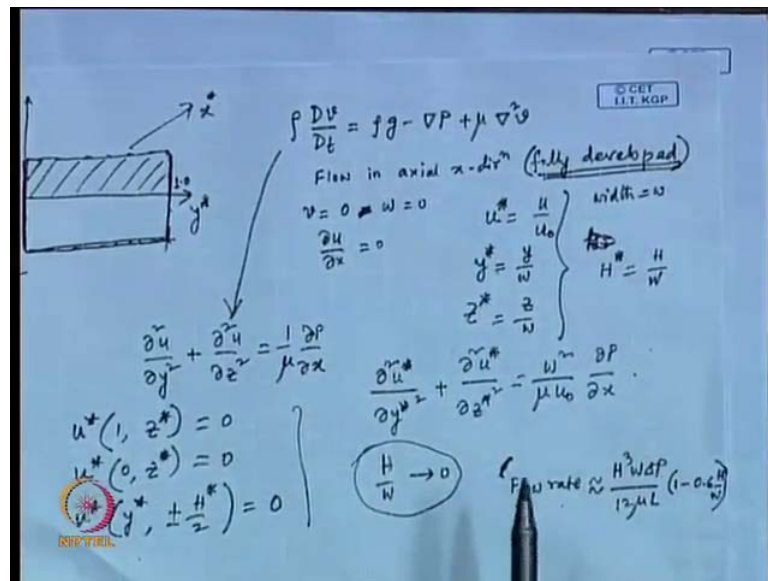 © CET
I.I.T. KGP
x*
1.0
y*
ρ Dv/Dt = ρg - ∇P + μ ∇²v
Flow in axial x-dirⁿ (fully developed)
v = 0 w = 0
∂u/∂x = 0
u* = u/u₀
y* = y/w
z* = z/w
width = w
H* = H/W
∂²u/∂y² + ∂²u/∂z² = 1/μ ∂P/∂x
∂²u*/∂y*² + ∂²u*/∂z*² = w²/μu₀ ∂P/∂x
u*(1, z*) = 0
u*(0, z*) = 0
u*(y*, ± H*/2) = 0
H/W → 0
(Flow rate ≈ H³WΔP/12μL (1 - 0.6 H/W)
NPTEL